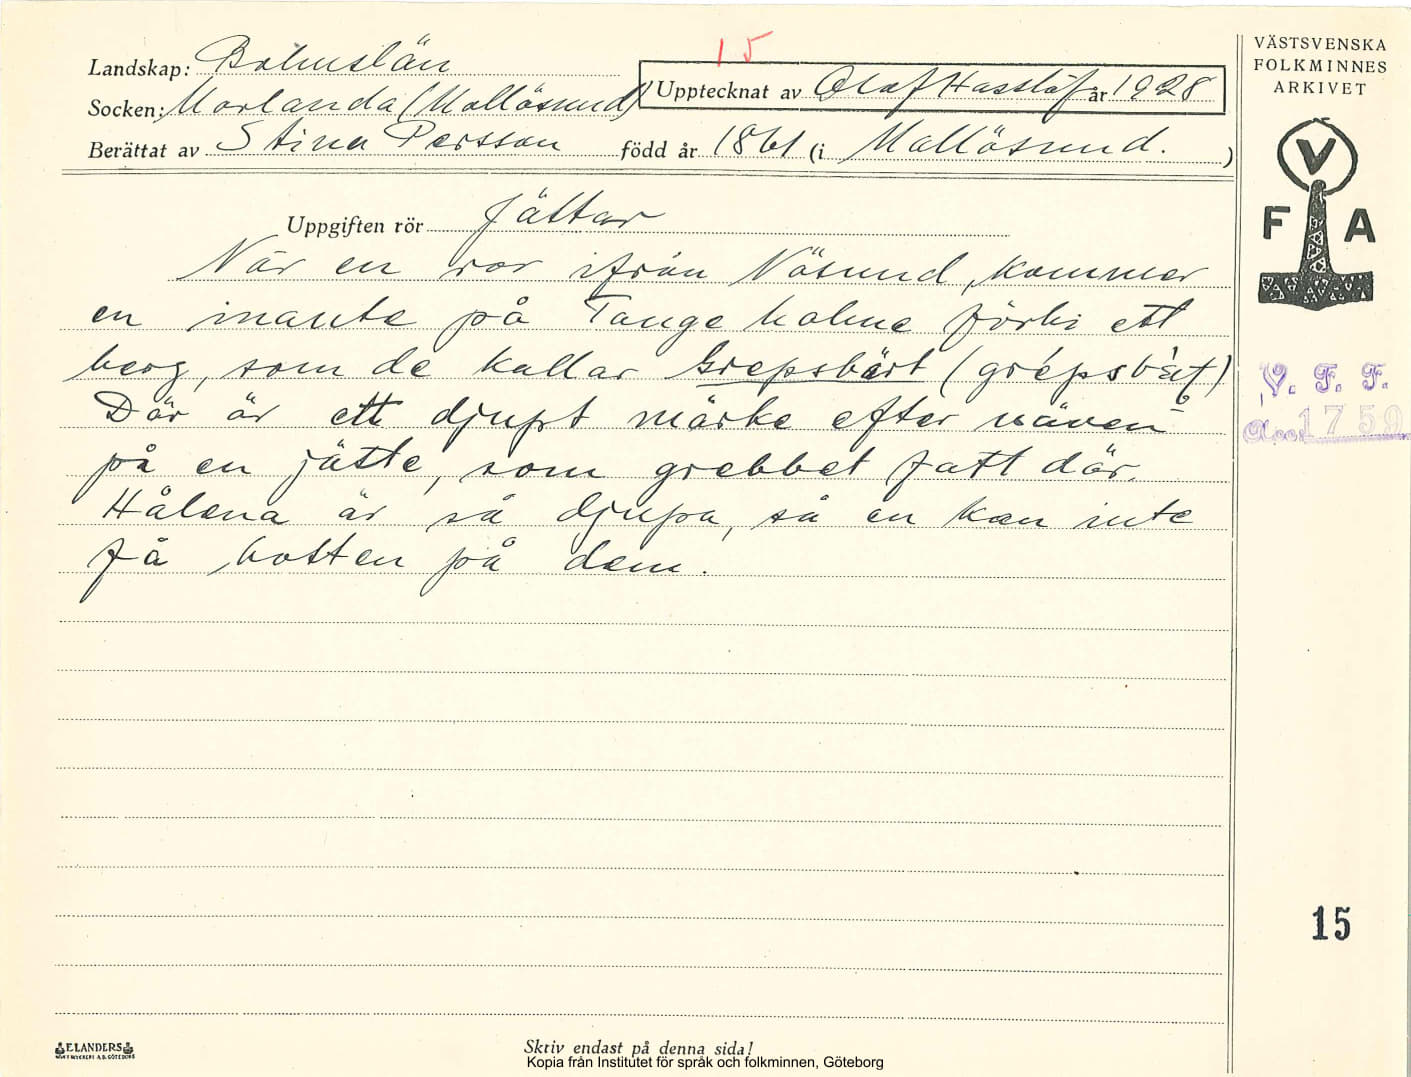 15
Landskap: Bohuslän
Upptecknat av Olof Hasslöf år 1928
Socken: Morlanda (Mollösund)
Berättat av Stina Persson född år 1861 (i Mollösund. )
Uppgiften rör Jättar
När en ror ifrån Nösund, kommer
en inante på Tange holme förbi ett
berg, som de kallar Grepsbärt
Där är ett djupt märke efter näven
på en jätte, som grebbet fatt där.
Hålena är så djupa, så en kan inte
få botten på dem.
VÄSTSVENSKA
FOLKMINNES
ARKIVET
V
F A
V. F. F.
Acc. 1759
15
ELANDERS
Skriv endast på denna sida!
Kopia från Institutet för språk och folkminnen, Göteborg